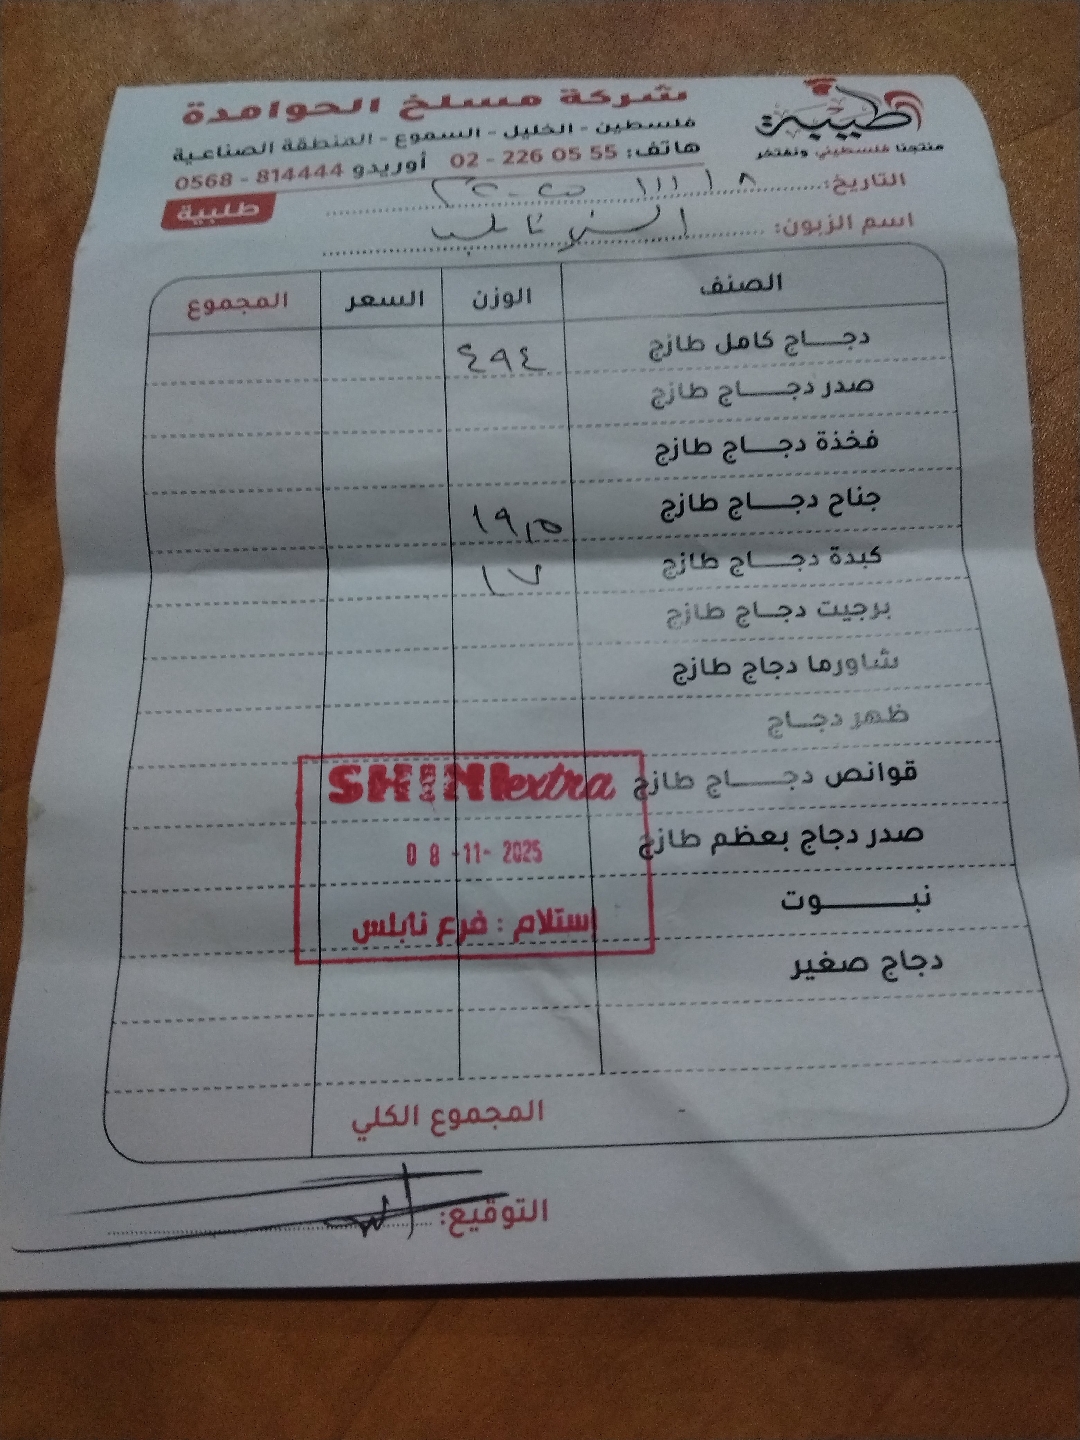 طيبة
منتجنا فلسطيني ونفتخر
شركة مسلخ الحوامدة
فلسطين - الخليل - السموع - المنطقة الصناعية
هاتف: 02 - 226 05 55 أوريدو 0568 - 814444
طلبية
التاريخ: ٨ / ١١ / ٢٠٢٥
اسم الزبون: الشني نابلس
الصنف الوزن السعر المجموع
دجـــاج كامل طازج ٤٩٤
صدر دجـــاج طازج
فخذة دجـــاج طازج
جناح دجـــاج طازج ١٩,٥
كبدة دجـــاج طازج ١٧
برجيت دجـــاج طازج
شاورما دجاج طازج
ظهر دجـــاج
قوانص دجـــاج طازج
صدر دجاج بعظم طازج
نبـــــوت
دجاج صغير
SHINIextra
08-11-2025
إستلام : فرع نابلس
المجموع الكلي
التوقيع: